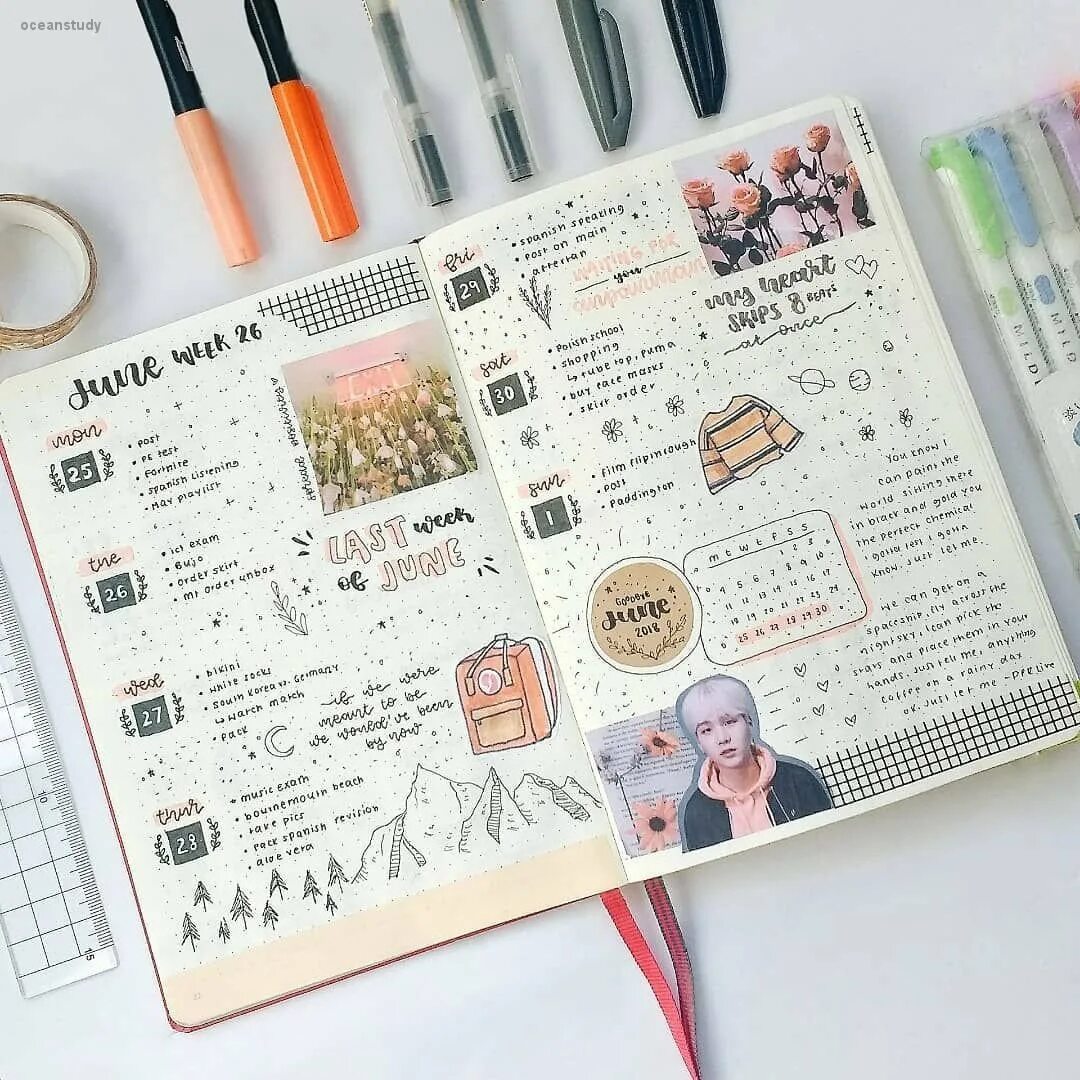 oceanstudy
JUNE WEEK 26
mon
25
• post
• PE test
• Fortnite
• Spanish listening
• May playlist
EXIT
spread positivity
tue
26
• ict exam
• Bujo
• order skirt
• MI order unbox
LAST week
of JUNE
wed
27
• bikini
• white socks
• South Korea vs. Germany
↳ watch match
• pack
if we were
meant to be
we would've been
by now
thur
28
• music exam
• bournemouth beach
• take pics
• pack spanish revision
• aloe vera
fri
29
• spanish speaking
• post on main
• aftertan
waiting for
you
anpanman
my heart
SKIPS 8 BEATS
at once
sat
30
• Polish school
• shopping
↳ tube top, puma
• buy face masks
• skirt order
sun
1
• Film flipthrough
• Post
• Paddington
m t w t f s s
1 2 3
4 5 6 7 8 9 10
11 12 13 14 15 16 17
18 19 20 21 22 23 24
25 26 27 28 29 30
GOODBYE
June
2018
You know I
can paint the
world sitting there
in black and gold you
the perfect chemical
I gotta test I gotta
know, just let me.
We can get on a
spaceship, fly across the
night sky, I can pick the
stars and place them in your
hands. Just tell me, anything
coffee on a rainy day
ok. Just let me - DPR Live
MILD
MILD
MILD
10
15